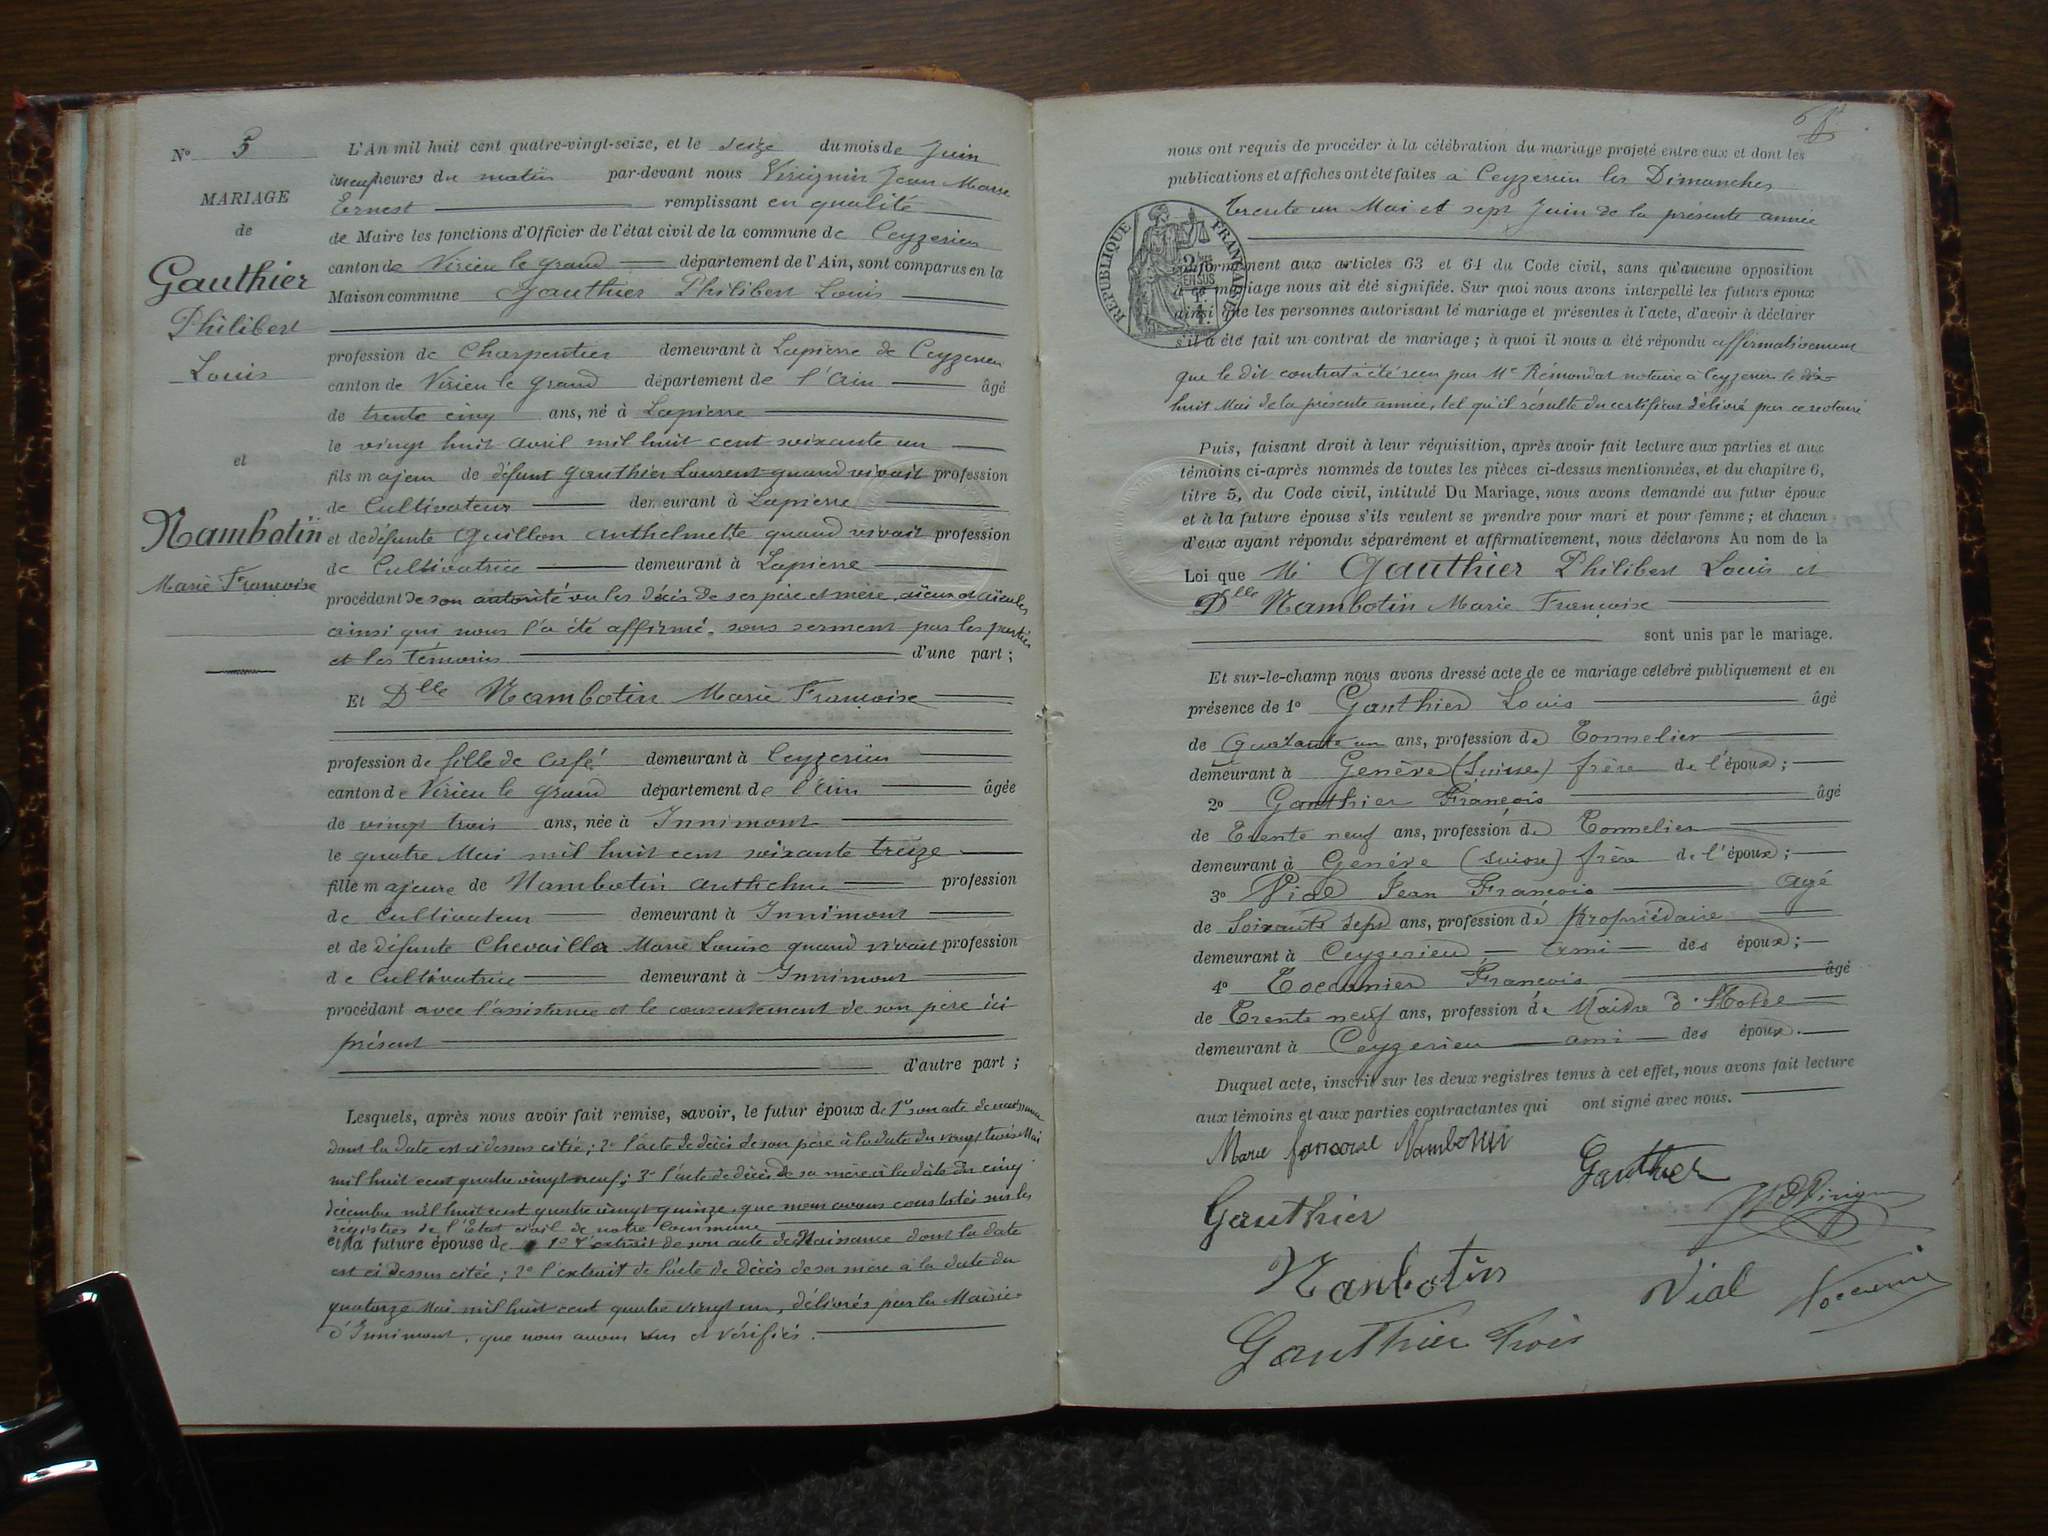 N° 5
MARIAGE
de
Gauthier
Philibert
Louis
et
Nambotin
Marie Françoise
L'An mil huit cent quatre-vingt-seize, et le seize du mois de Juin
à neuf heures du matin par-devant nous Virignin Jean Marie
Ernest remplissant en qualité
de Maire les fonctions d'Officier de l'état civil de la commune de Ceyzerieu
canton de Virieu le grand département de l'Ain, sont comparus en la
Maison commune Gauthier Philibert Louis
profession de Charpentier demeurant à Lapierre de Ceyzerieu
canton de Virieu le grand département de l'Ain âgé
de trente cinq ans, né à Lapierre
le vingt huit avril mil huit cent soixante un
fils majeur de défunt Gauthier Laurent quand vivait profession
de Cultivateur demeurant à Lapierre
et de défunte Guillon Anthelmette quand vivait profession
de Cultivatrice demeurant à Lapierre
procédant de son autorité vu les décès de ses père et mère, aïeux et aïeules
ainsi qui nous l'a été affirmé sous serment par les parties
et les témoins d'une part ;
Et Dlle Nambotin Marie Françoise
profession de fille de café demeurant à Ceyzerieu
canton de Virieu le grand département de l'Ain âgée
de vingt trois ans, née à Innimont
le quatre Mai mil huit cent soixante treize
fille majeure de Nambotin Anthelme profession
de Cultivateur demeurant à Innimont
et de défunte Chevailler Marie Louise quand vivait profession
de Cultivatrice demeurant à Innimont
procédant avec l'assistance et le consentement de son père ici
présent
d'autre part ;
Lesquels, après nous avoir fait remise, savoir, le futur époux de 1° son acte de naissance
dont la date est ci dessus citée ; 2° l'acte de décès de son père à la date du vingt trois Mai
mil huit cent quatre vingt neuf ; 3° l'acte de décès de sa mère à la date du cinq
décembre mil huit cent quatre vingt quinze, que nous avons constatés sur les
régistres de l'Etat civil de notre commune
et la future épouse de 1° l'extrait de son acte de Naissance dont la date
est ci dessus citée ; 2° l'extrait de l'acte de décès de sa mère à la date du
quatorze Mai mil huit cent quatre vingt un, délivrés par la Mairie
d'Innimont, que nous avons vus et vérifiés.
nous ont requis de procéder à la célébration du mariage projeté entre eux et dont les
publications et affiches ont été faites à Ceyzerieu les Dimanches
Trente un Mai et sept Juin de la présente année
RÉPUBLIQUE FRANÇAISE
conformément aux articles 63 et 64 du Code civil, sans qu'aucune opposition
à ce mariage nous ait été signifiée. Sur quoi nous avons interpellé les futurs époux
ainsi que les personnes autorisant le mariage et présentes à l'acte, d'avoir à déclarer
s'il a été fait un contrat de mariage ; à quoi il nous a été répondu affirmativement
que le dit contrat a été reçu par Me Rémondat notaire à Ceyzerieu le dix-
huit Mai de la présente année, tel qu'il résulte du certificat délivré par ce notaire
Puis, faisant droit à leur réquisition, après avoir fait lecture aux parties et aux
témoins ci-après nommés de toutes les pièces ci-dessus mentionnées, et du chapitre 6,
titre 5, du Code civil, intitulé Du Mariage, nous avons demandé au futur époux
et à la future épouse s'ils veulent se prendre pour mari et pour femme ; et chacun
d'eux ayant répondu séparément et affirmativement, nous déclarons Au nom de la
Loi que Mr Gauthier Philibert Louis et
Dlle Nambotin Marie Françoise
sont unis par le mariage.
Et sur-le-champ nous avons dressé acte de ce mariage célébré publiquement et en
présence de 1° Gauthier Louis âgé
de Quarante un ans, profession de Tonnelier
demeurant à Genève (Suisse) frère de l'époux ;
2° Gauthier François âgé
de Trente neuf ans, profession de Tonnelier
demeurant à Genève (Suisse) frère de l'époux ;
3° Vial Jean François agé
de Soixante sept ans, profession de Propriédaire
demeurant à Ceyzerieu ami des époux ;
4° Toccanier François âgé
de Trente neuf ans, profession de Maitre d'Hotel
demeurant à Ceyzerieu ami des époux.
Duquel acte, inscrit sur les deux registres tenus à cet effet, nous avons fait lecture
aux témoins et aux parties contractantes qui ont signé avec nous.
Marie françoise Nambotin
Gauthier
Gauthier
Nanbotin
Vial
Gauthier Frois